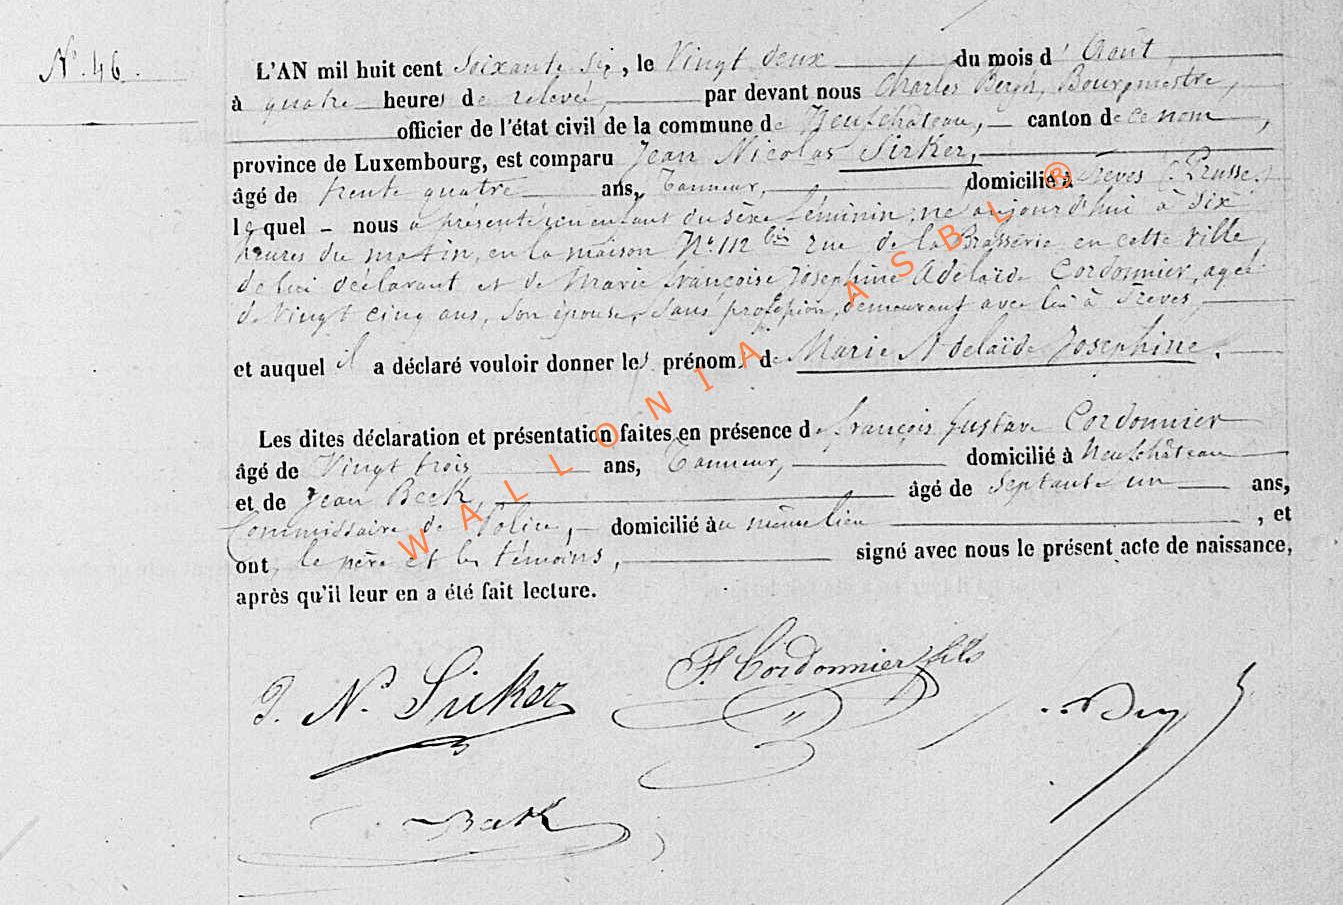 N° 46.
L'AN mil huit cent soixante six, le Vingt deux du mois d'Août,
à quatre heures de relevée, par devant nous Charles Bergh, Bourgmestre,
officier de l'état civil de la commune de Neufchâteau, canton de ce nom,
province de Luxembourg, est comparu Jean Nicolas Sirker,
âgé de trente quatre ans, Tanneur, domicilié à Trèves (Prusse)
lequel nous a présenté un enfant du sèxe féminin, né aujourd'hui à dix
heures du matin, en la maison N° 112 bis rue de la Brasserie en cette ville,
de lui déclarant et de Marie françoise Josephine Adelaïde Cordonnier, agée
de Vingt cinq ans, son épouse, sans profession, demeurant avec lui à Trèves,
et auquel il a déclaré vouloir donner les prénoms de Marie Adelaïde Josephine.
Les dites déclaration et présentation faites en présence de françois Gustave Cordonnier
âgé de Vingt trois ans, Tanneur, domicilié à Neufchâteau
et de Jean Beck, âgé de septante un ans,
Commissaire de Police, domicilié au même lieu, et
ont, le père et les témoins, signé avec nous le présent acte de naissance,
après qu'il leur en a été fait lecture.
J. N. Sirker
F. Cordonnier fils
Beck
WALLONIA ASBL ®